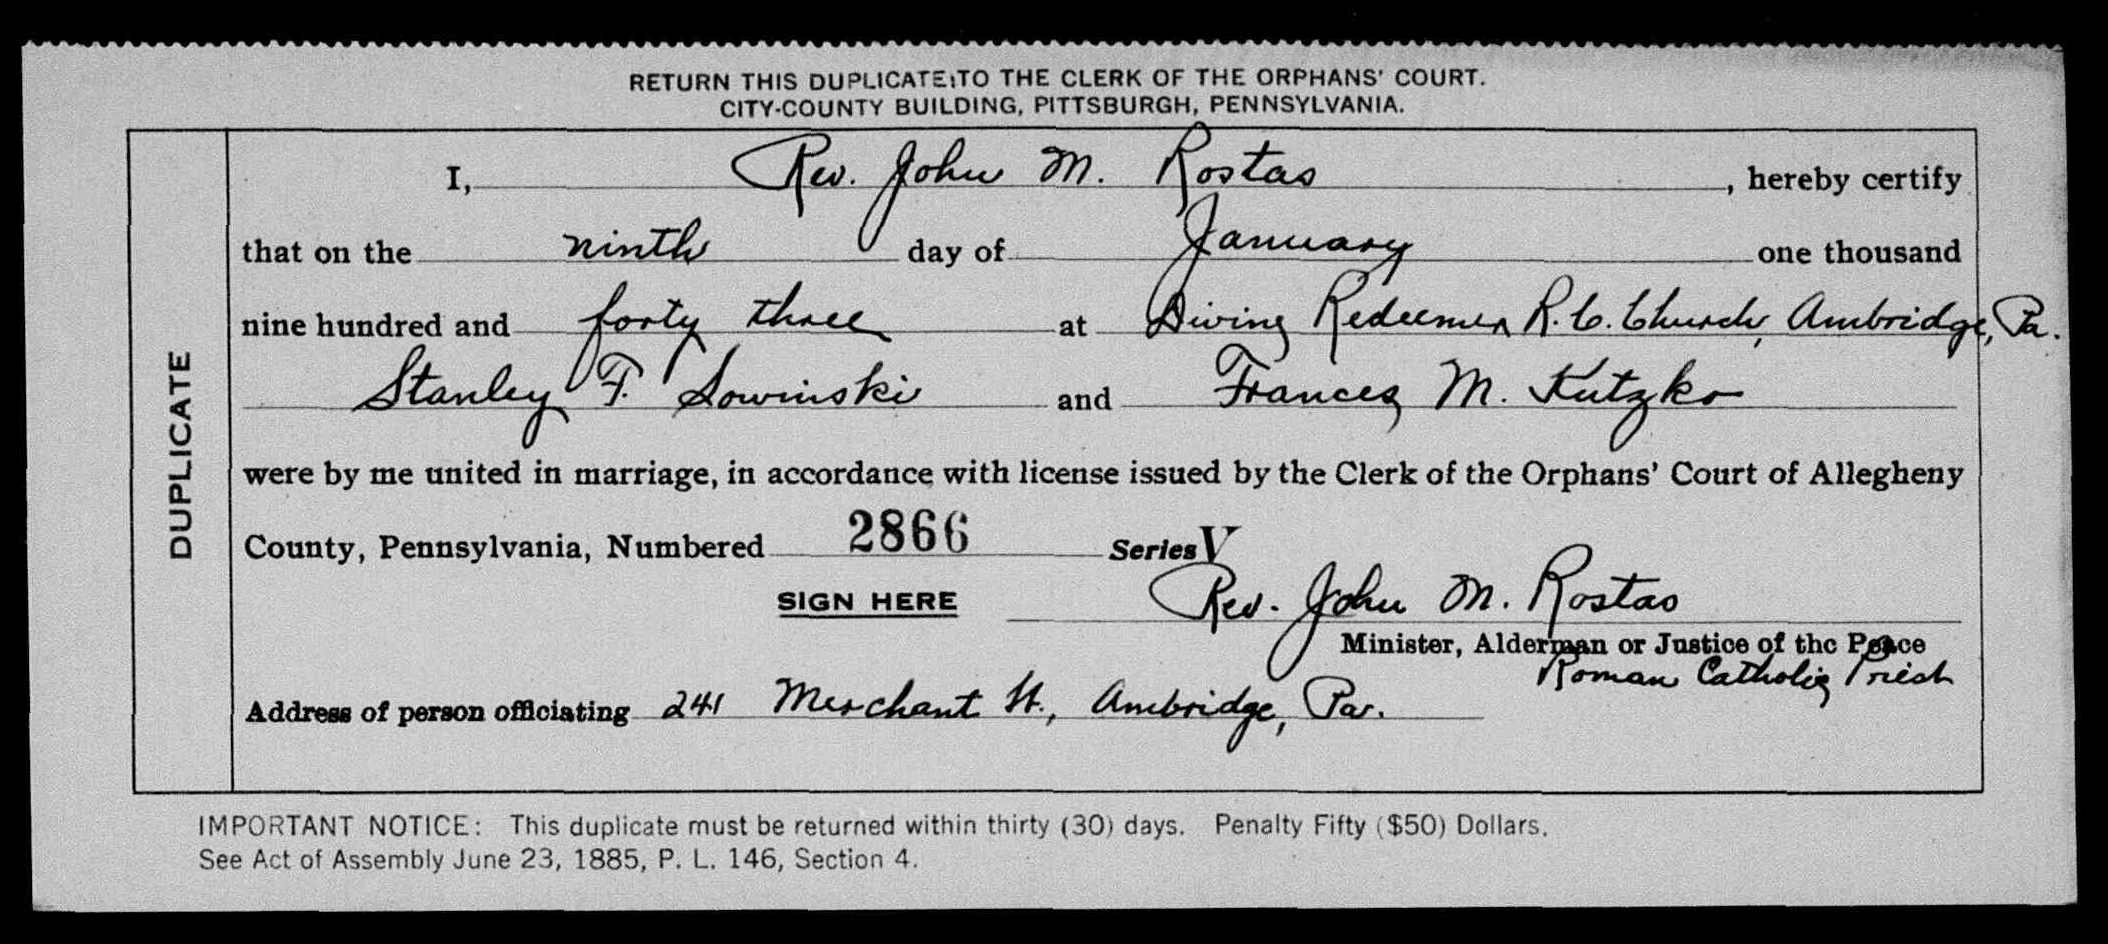 RETURN THIS DUPLICATE TO THE CLERK OF THE ORPHANS' COURT.
CITY-COUNTY BUILDING, PITTSBURGH, PENNSYLVANIA.
DUPLICATE
I, Rev. John M. Rostas, hereby certify
that on the ninth day of January one thousand
nine hundred and forty three at Diving Redeemer R. C. Church, Ambridge, Pa.
Stanley F. Sowinski and Frances M. Kutzko
were by me united in marriage, in accordance with license issued by the Clerk of the Orphans' Court of Allegheny
County, Pennsylvania, Numbered 2866 Series V
SIGN HERE Rev. John M. Rostas
Minister, Alderman or Justice of the Peace
Roman Catholic Priest
Address of person officiating 241 Merchant St., Ambridge, Pa.
IMPORTANT NOTICE: This duplicate must be returned within thirty (30) days. Penalty Fifty ($50) Dollars.
See Act of Assembly June 23, 1885, P. L. 146, Section 4.